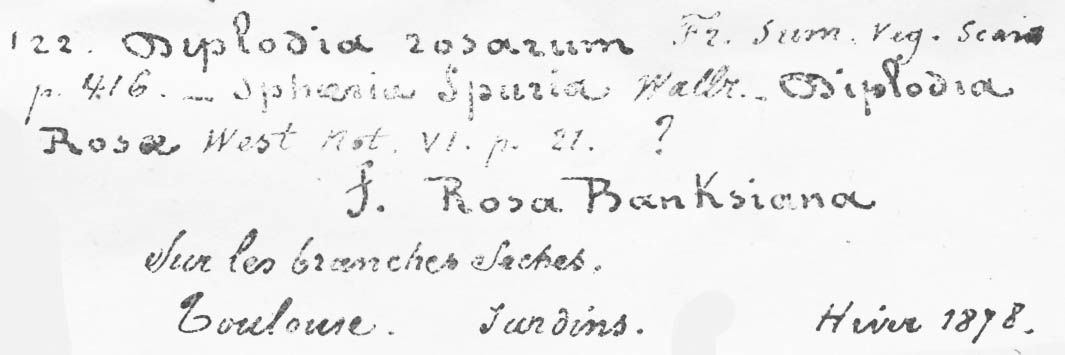 122. Diplodia rosarum Fr. Sum. Veg. Scan
p. 416. _ Sphæria Spuria Wallr. _ Diplodia
Rosæ West Not. VI. p. 21. ?
f. Rosa Banksiana
Sur les branches sèches.
Toulouse. Jardins. Hiver 1878.